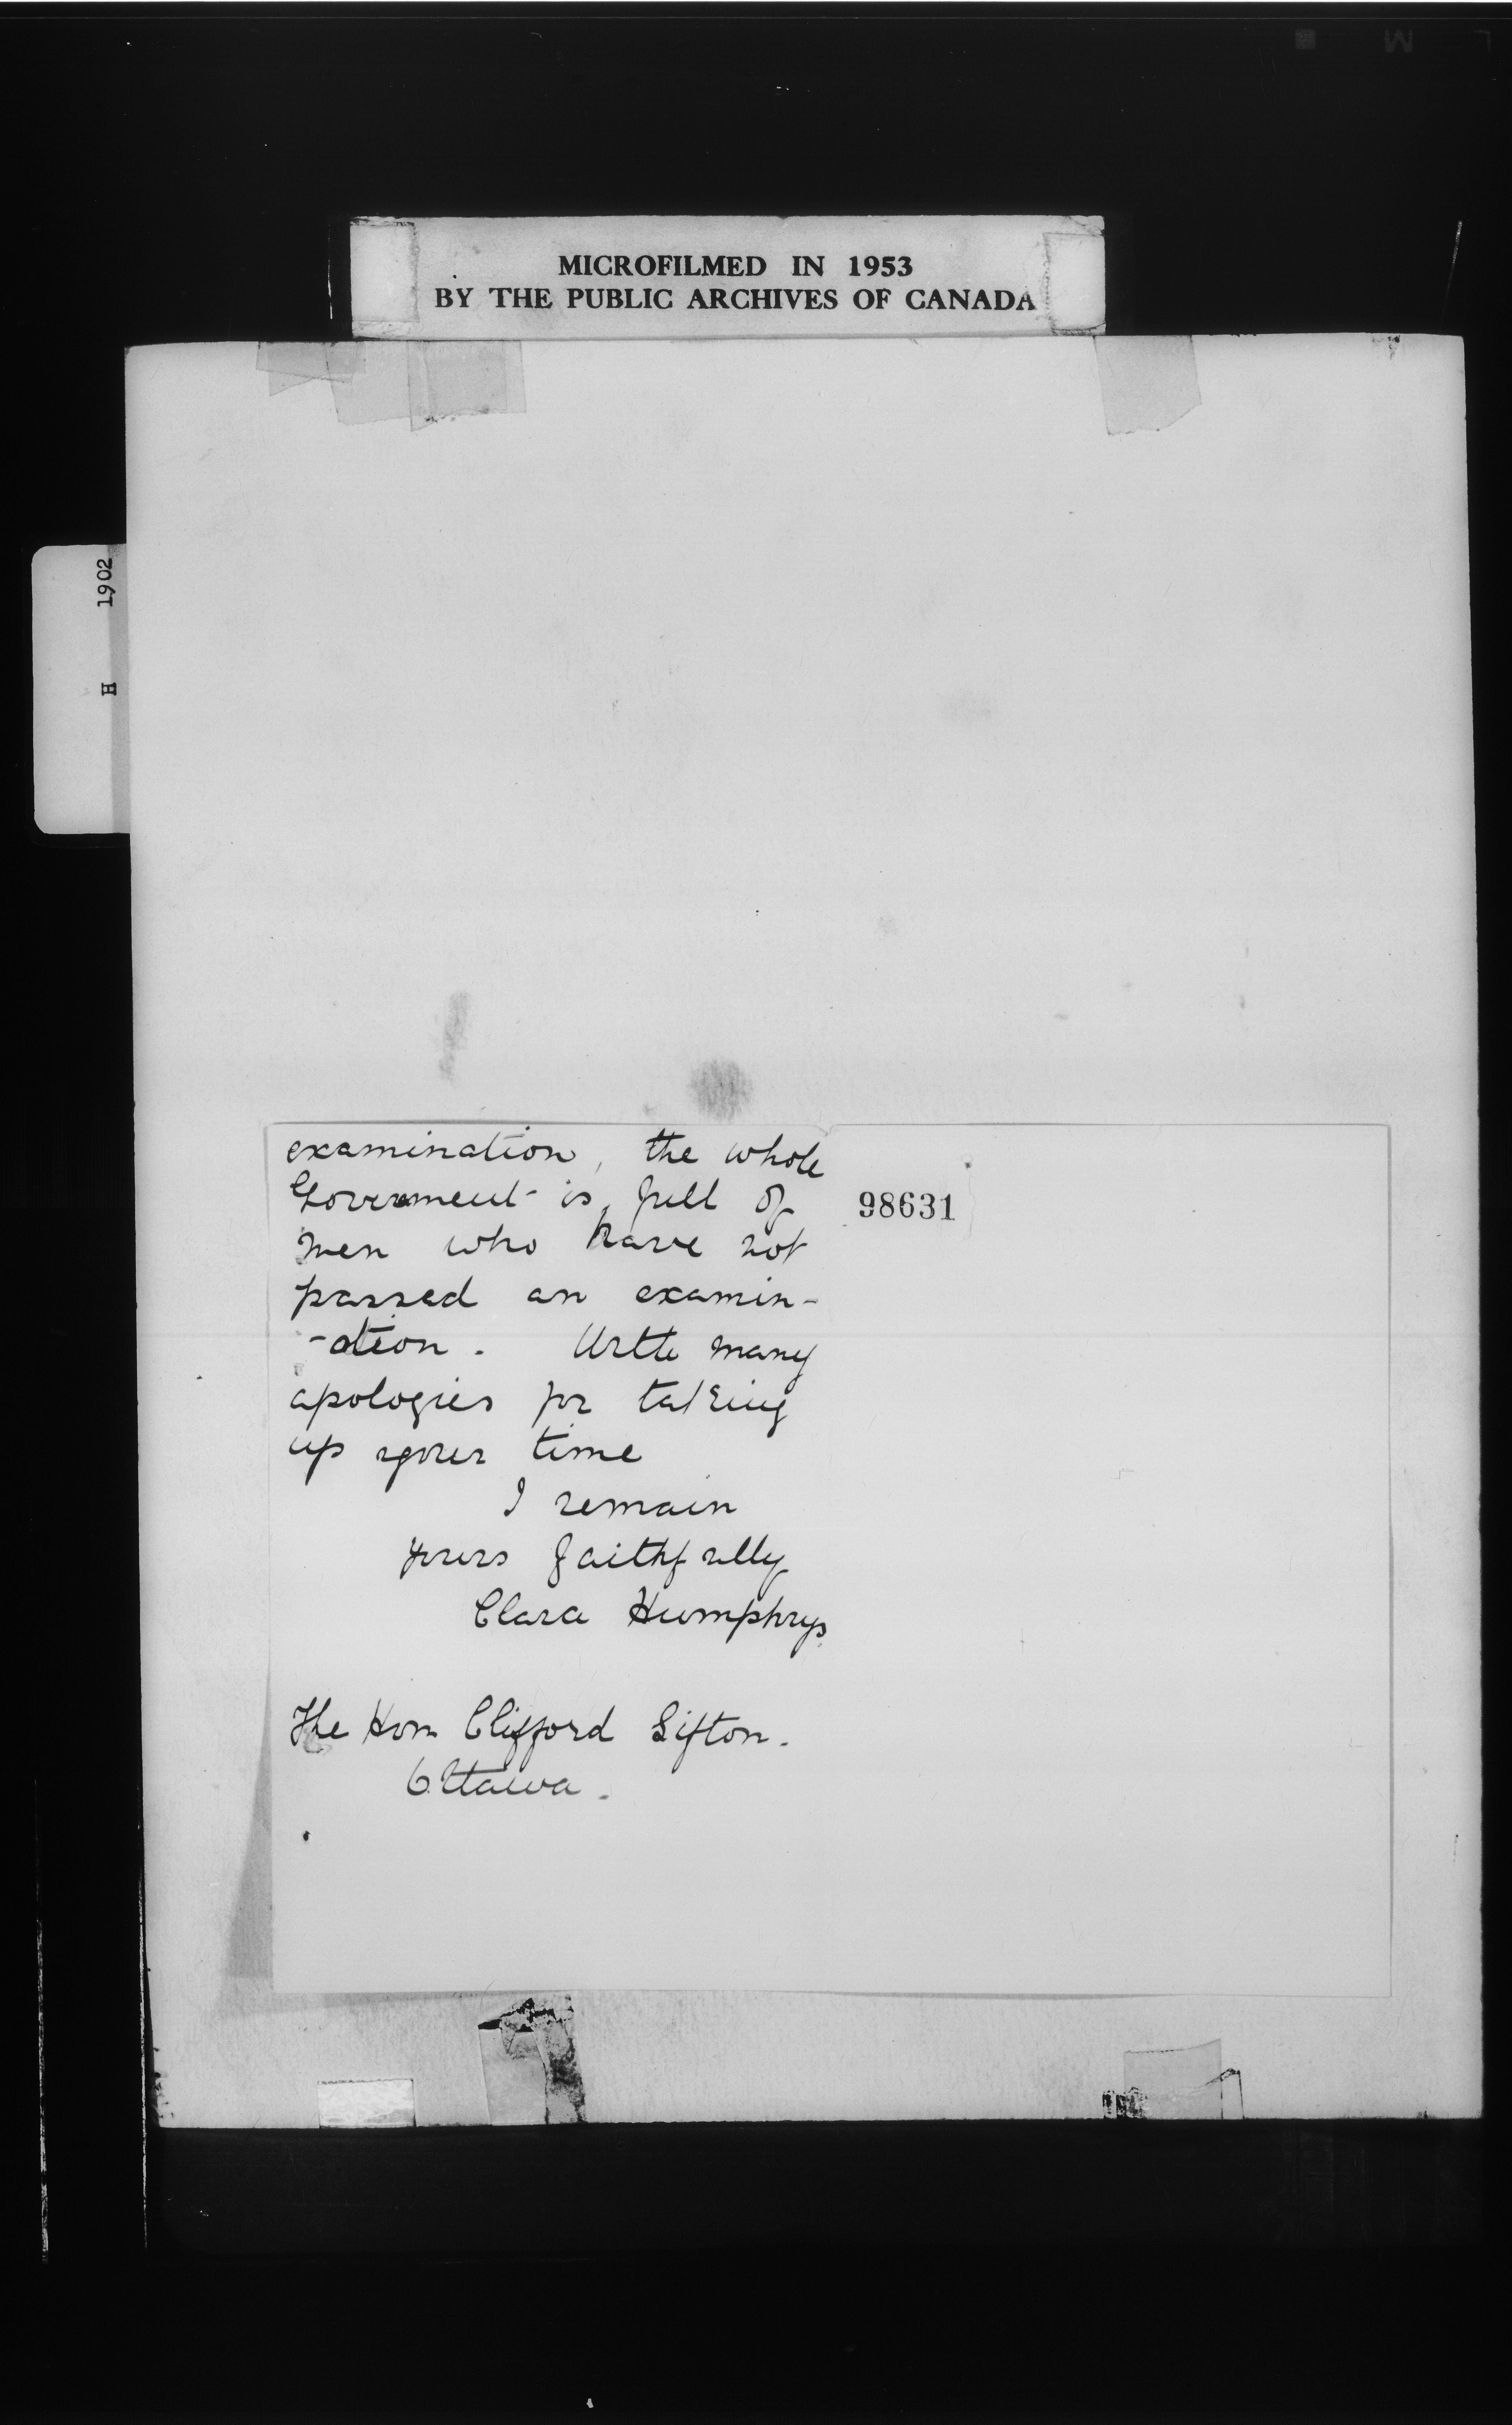 MICROFILMED IN 1953
BY THE PUBLIC ARCHIVES OF CANADA
H 1902
examination, the whole
Government is full of
men who have not
passed an examin-
-ation. With many
apologies for taking
up your time
I remain
yours faithfully
Clara Humphrys
The Hon Clifford Sifton.
Ottawa.
98631